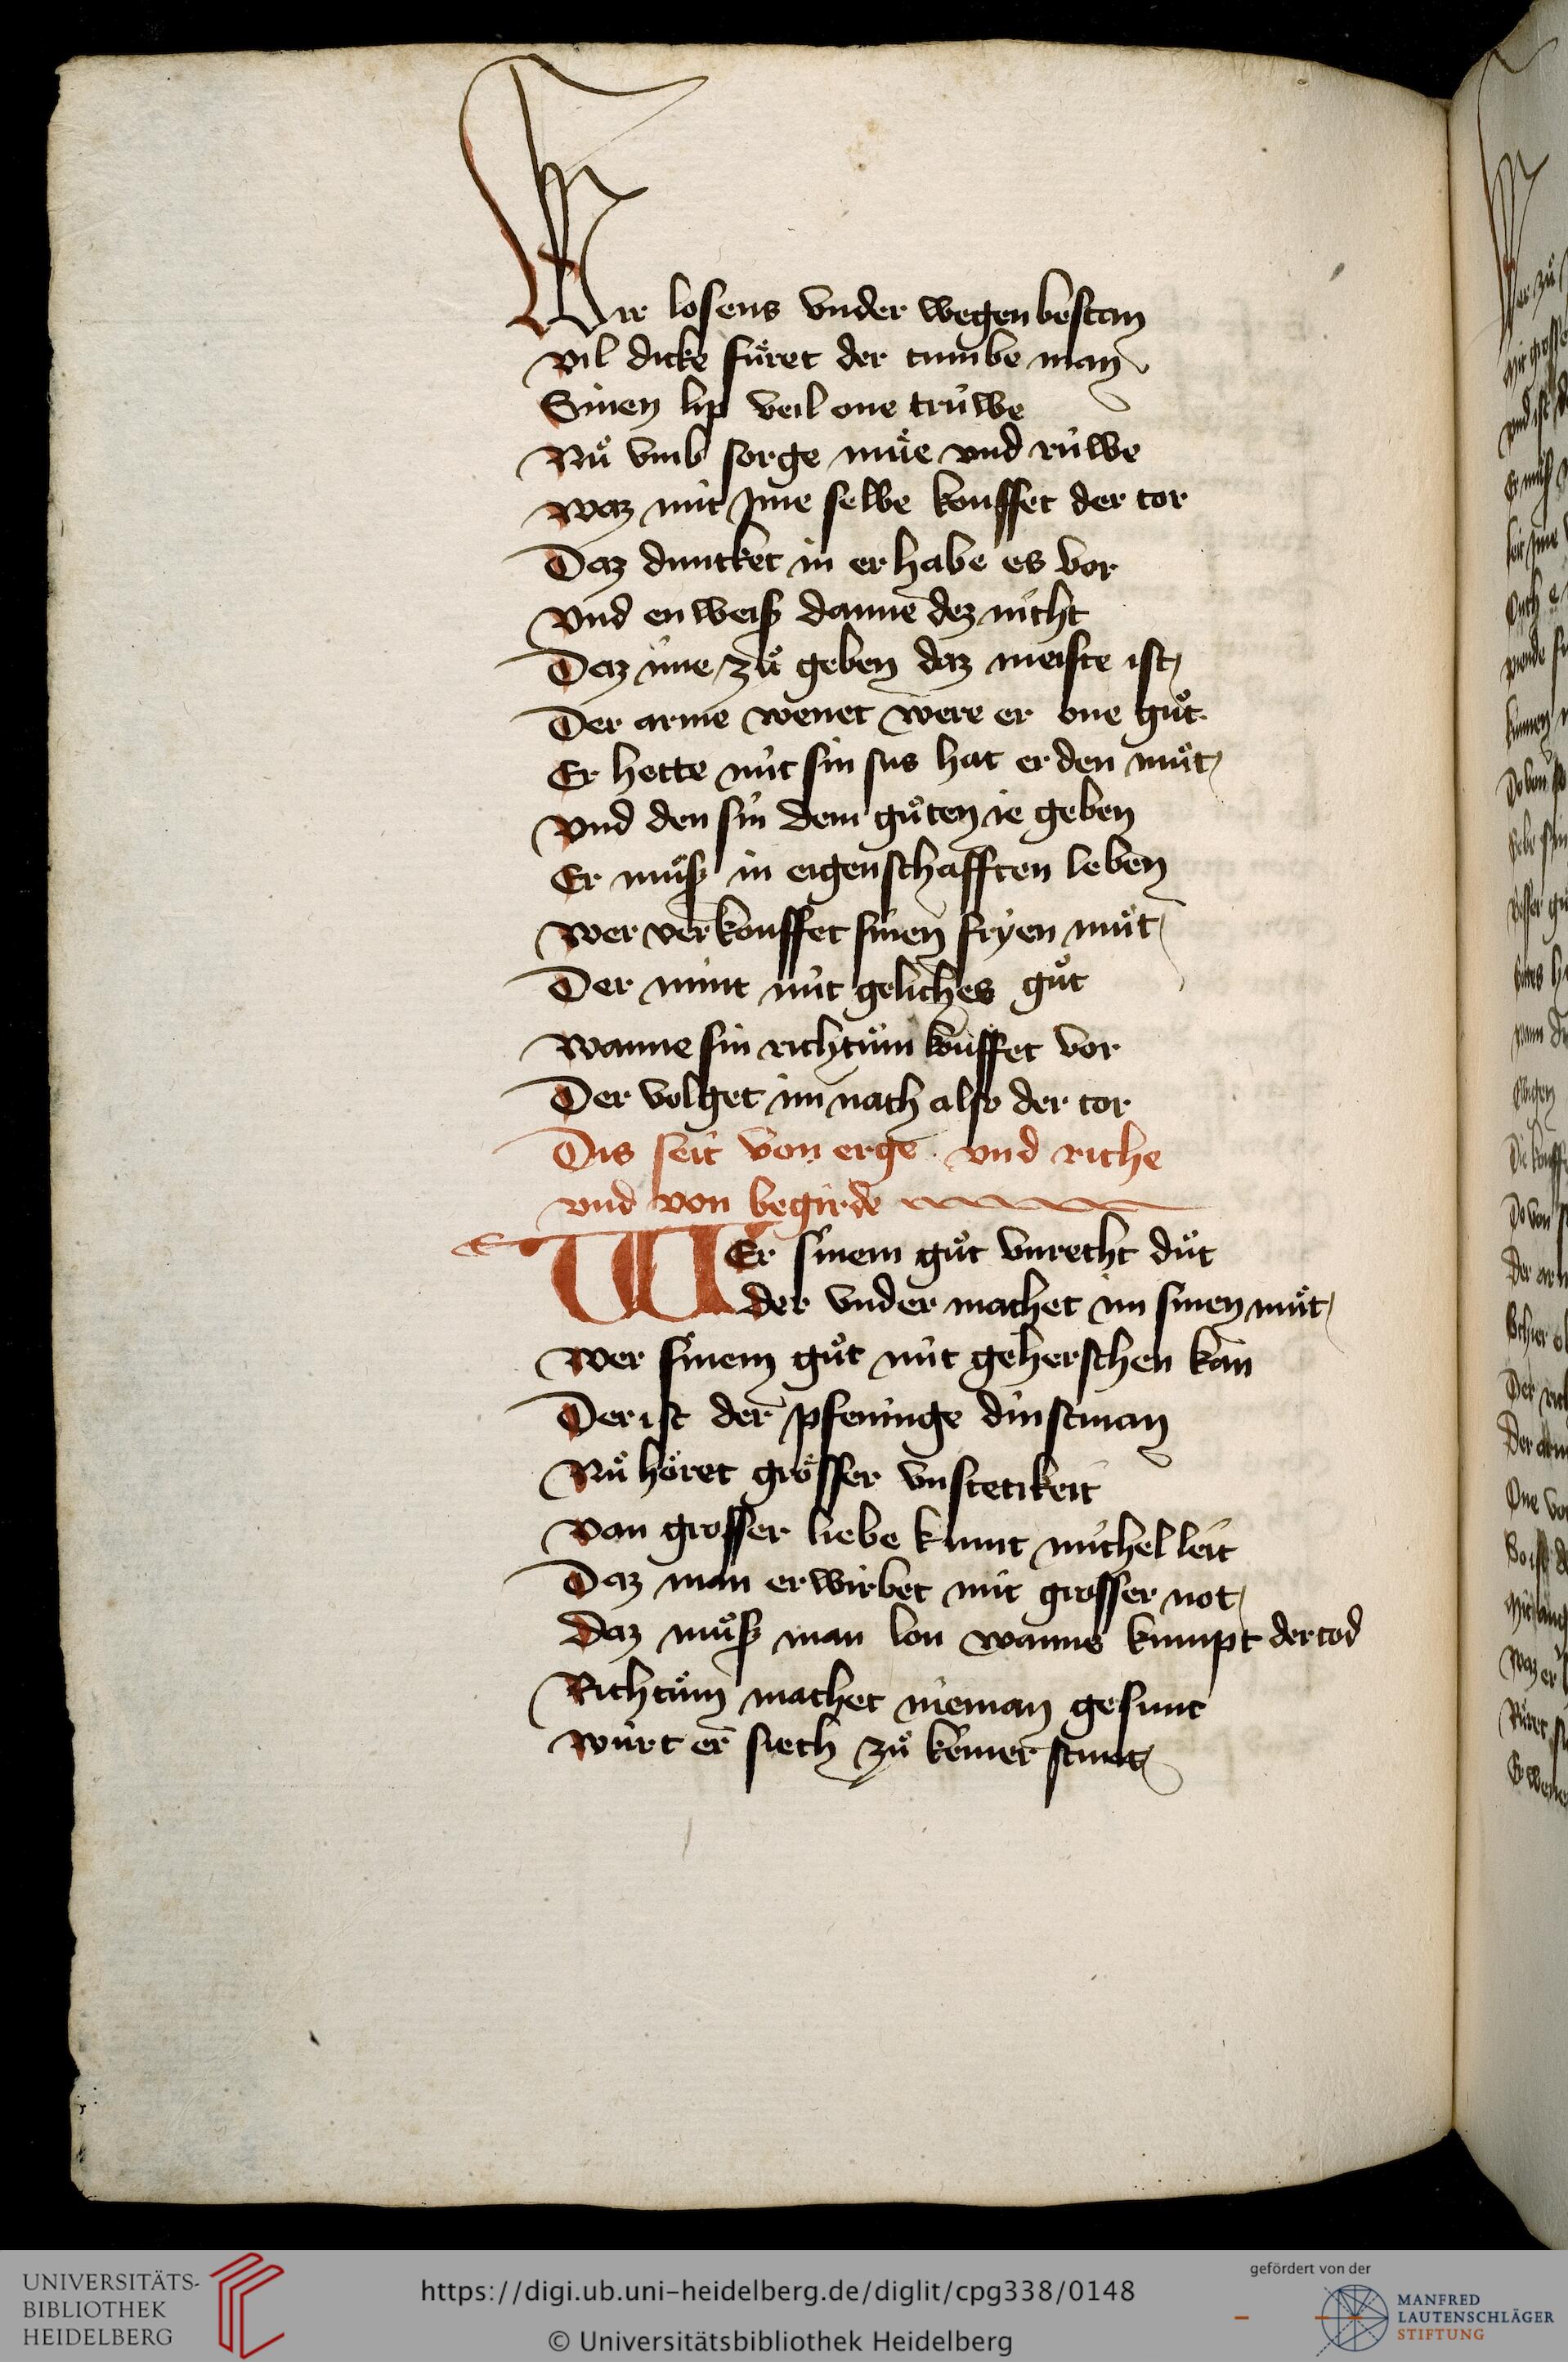 Wir losens vnder wegen bestan
vil dicke fuͤret der tumbe man
Sinen lip veil one truͤwe
Nuͦ vmb sorge muͤe vnd ruͤwe
waz mit Jme selbe kouffet der tor
Daz duncket in er habe es vor
vnd en weiß danne dez nicht
Daz ime zuͦ geben daz meiste ist
Der arme wenet were er one guͦt
Er hette nit sin sus hat er den muͦt
vnd den sin dem guͦten ie geben
Er muͦß in eigenschafften leben
wer verkouffet sinen fryen muͦt
Der nimt nit geliches guͦt
wanne sin richtuͦm kouffet vor
Der volget im nach also der tor
Dis seit von erge vnd riche
vnd von begirde
WEr sinem guͦt vnrecht duͦt
der vnder machet im sinen muͦt
wer sinem guͦt nit geherschen kan
Der ist der pfeninge dinstman
Nuͦ hoͤret groͤsser vnstetikeit
von grosser liebe kumt michel leit
Daz man erwirbet mit grosser not
Daz muͦß man lon wanne kumpt der tod
Richtuͦm machet nieman gesunt
wurt er siech zuͦ keiner stunt
UNIVERSITÄTS-
BIBLIOTHEK
HEIDELBERG
https://digi.ub.uni-heidelberg.de/diglit/cpg338/0148
© Universitätsbibliothek Heidelberg
gefördert von der
MANFRED
LAUTENSCHLÄGER
STIFTUNG